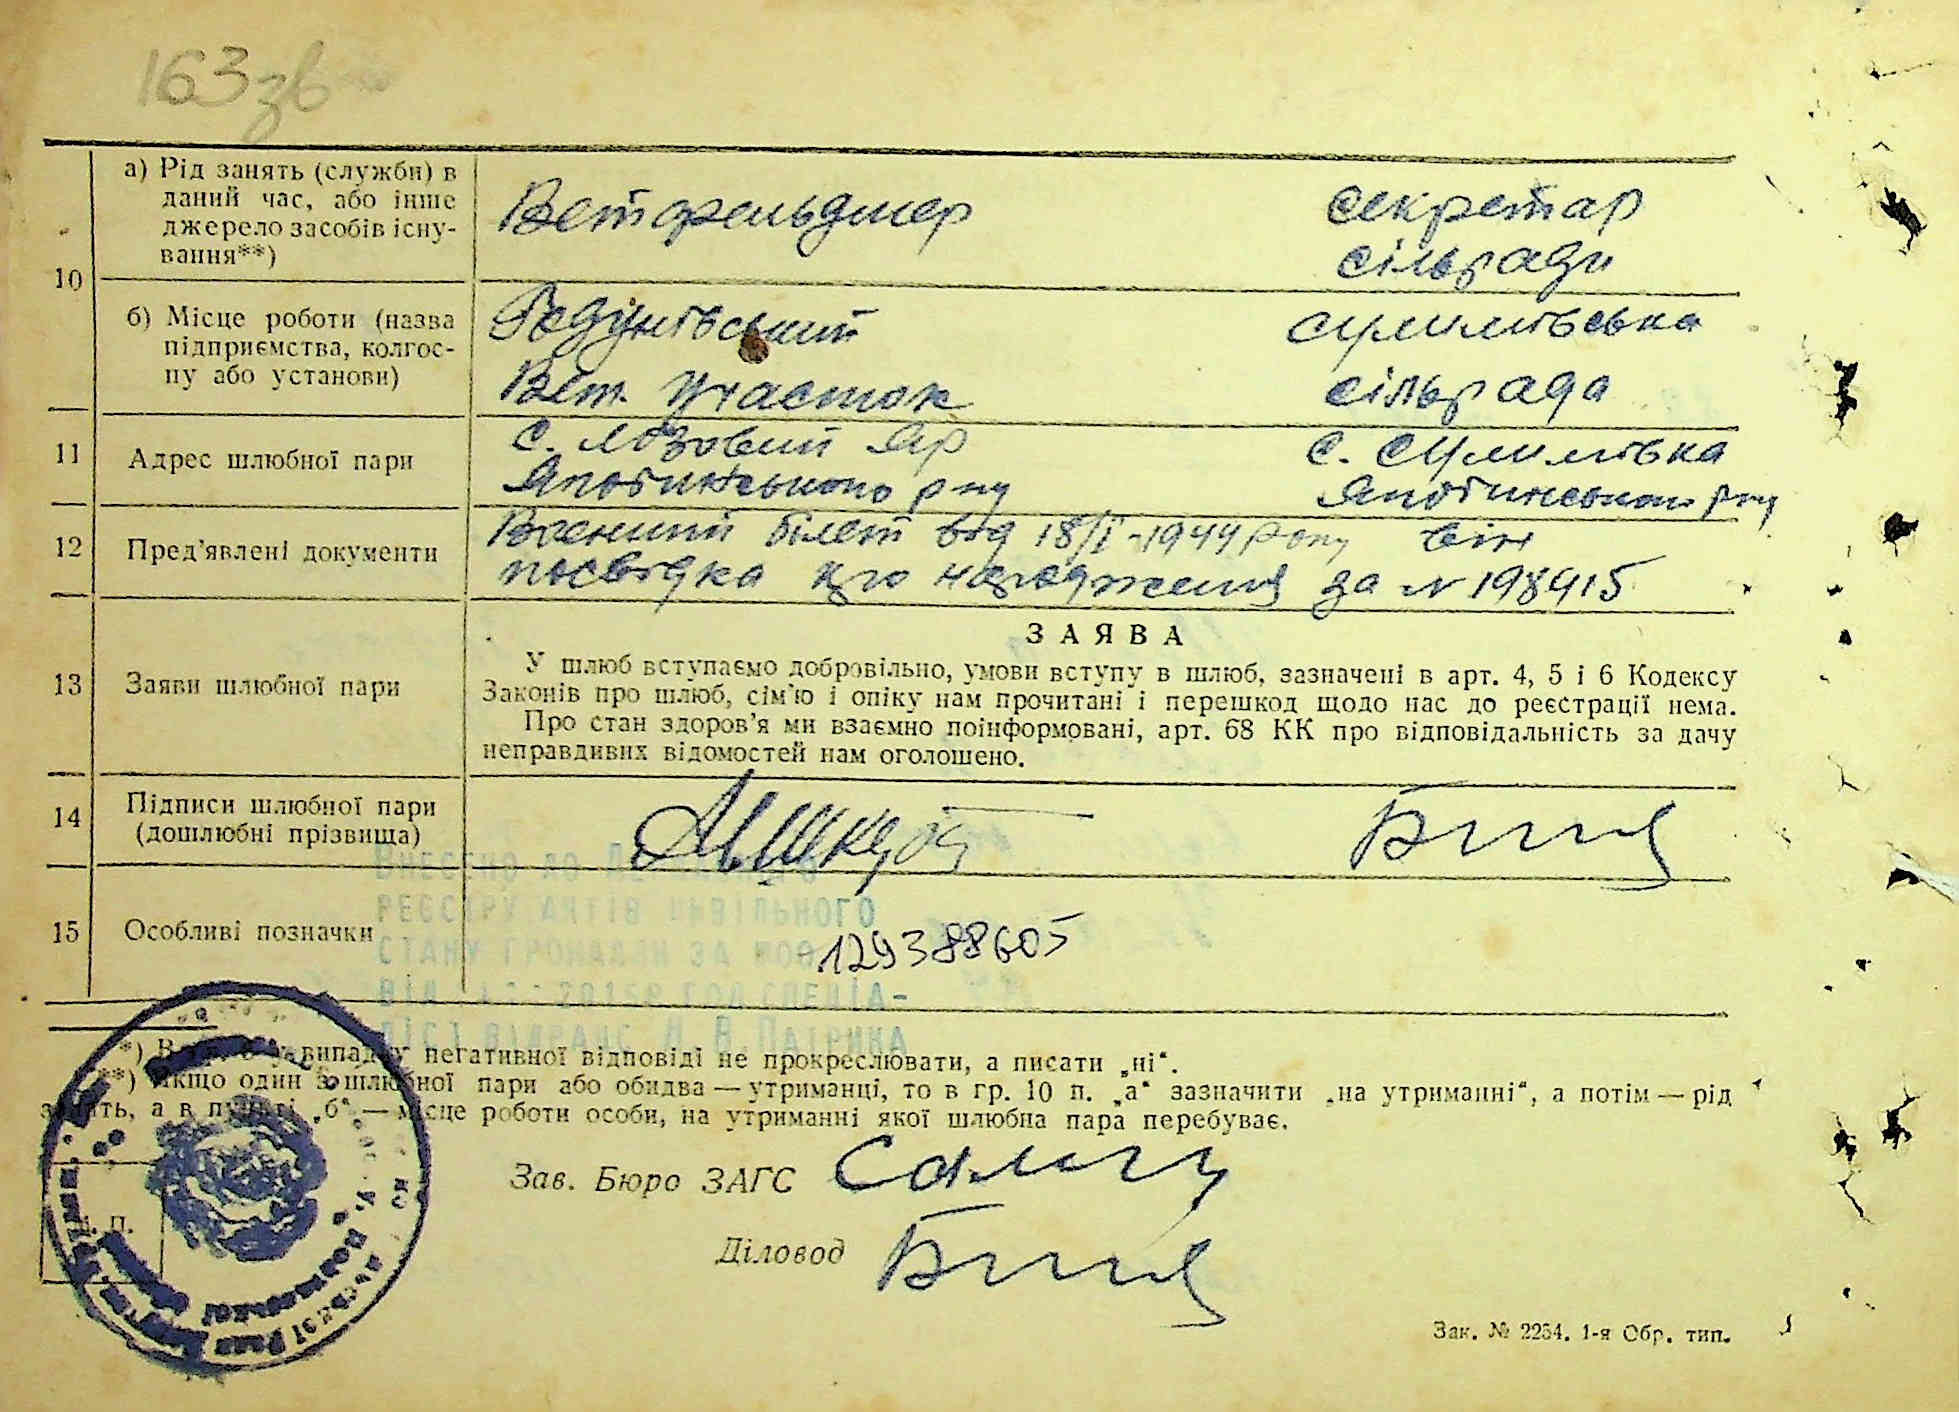 163зв
10
а) Рід занять (служби) в
даний час, або інше
джерело засобів існу-
вання**)
Ветфельдшер
секретар
сільради
б) Місце роботи (назва
підприємства, колгос-
пу або установи)
Вет. участок
Сулимівська
сільрада
11
Адрес шлюбної пари
с. Лозовий Яр
Яготинського р-ну
с. Сулимівка
Яготинського р-ну
12
Пред’явлені документи
Воєнний білет від 18/I-1944 року він
посвідка про народження за № 198415
13
Заяви шлюбної пари
ЗАЯВА
У шлюб вступаємо добровільно, умови вступу в шлюб, зазначені в арт. 4, 5 і 6 Кодексу
Законів про шлюб, сім’ю і опіку нам прочитані і перешкод щодо нас до реєстрації нема.
Про стан здоров’я ми взаємно поінформовані, арт. 68 КК про відповідальність за дачу
неправдивих відомостей нам оголошено.
14
Підписи шлюбної пари
(дошлюбні прізвища)
15
Особливі позначки
129388605
Внесено до
реєстру актів цивільного
стану громадян за
від 2015р.
*) в випадку негативної відповіді не прокреслювати, а писати „ні“.
**) Якщо один з шлюбної пари або обидва — утриманці, то в гр. 10 п. „а“ зазначити „на утриманні“, а потім — рід
занять, а в пункті „б“ — місце роботи особи, на утриманні якої шлюбна пара перебуває.
Зав. Бюро ЗАГС
Діловод
М. П.
Зак. № 2254. 1-я Обр. тип.